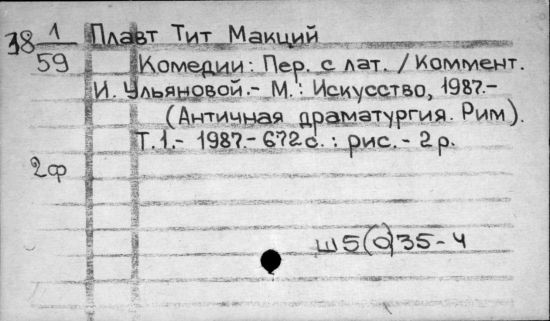 38 1/59
Плавт Тит Макций
Комедии: Пер. с лат. / Коммент.
И. Ульяновой.- М.: Искусство, 1987.-
(Античная драматургия. Рим).
Т.1.- 1987.- 672 с.: рис.- 2 р.
2ф
Ш5(0)35-4